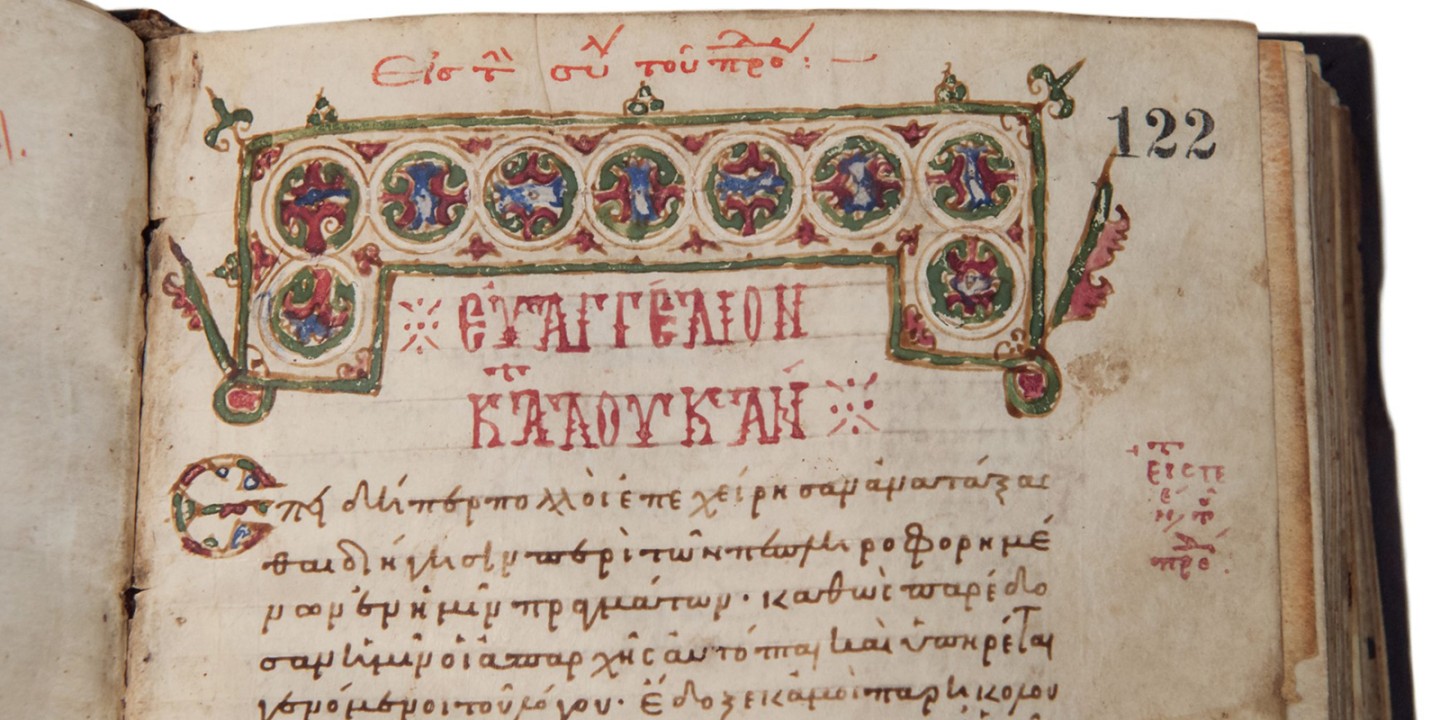 Εἰς τ συ τοῦ προ :
122
ΕΥΑΓΓΕΛΙΟΝ
ΚΑΤ ΛΟΥΚΑΝ
Ἐπειδήπερ πολλοὶ ἐπεχείρησαν ἀνατάξασ
θαι διήγησιν περὶ τῶν πεπληροφορημέ
νων ἐν ἡμῖν πραγμάτων · καθὼς παρέδο
σαν ἡμῖν οἱ ἀπαρχῆς αὐτόπται καὶ ὑπηρέται
γενόμενοι τοῦ λόγου · ἔδοξε κἀμοὶ παρηκολου
εἰς τ
προ